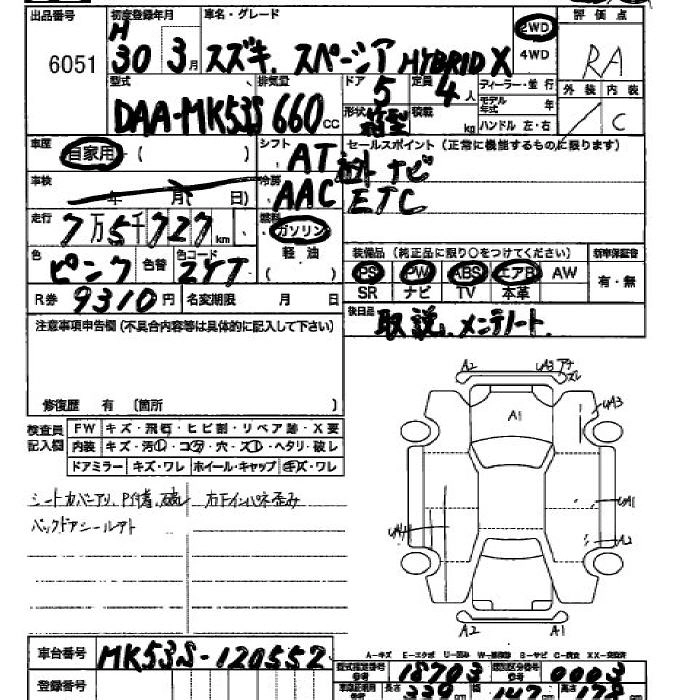 出品番号 初度登録年月 車名・グレード 2WD 評価点
6051 H 30 3月 スズキ. スペーシア HYBRID X 4WD RA
型式 排気量 ドア 定員 ディーラー・並行 外装 内装
DAA-MK53S 660cc 5 4人 モデル年式 年
形状 箱型 積載 kg ハンドル 左・右 C
車歴 自家用・( ) シフト AT セールスポイント(正常に機能するものに限ります)
社外ナビ
車検 年 月( 日) 冷房 AAC ETC
走行 7万5千727km 燃料 ガソリン
軽油
( )
色 ピンク 色替 色コード ZYT
装備品(純正品に限り○をつけてください) 新車保証書
PS PW ABS エアB AW 有・無
SR ナビ TV 本革
R券 9310円 名変期限 月 日
後日品 取説、メンテノート.
注意事項申告欄(不具合内容等は具体的に記入して下さい)
修復歴 有 〔箇所 〕
検査員記入欄 FW キズ・飛石・ヒビ割・リペア跡・X要
内装 キズ・汚レ・コゲ・穴・スレ・ヘタリ・破レ
ドアミラー キズ・ワレ ホイール・キャップ キズ・ワレ
シートカバーアリ、
バックドアシールアト
A2 UA3
A1 UA3
UA1
A2
A2 A1
A-キズ E-エクボ
車台番号 MK53S-120552
型式指定番号 18703 類別区分番号 0003
登録番号 長さ 339cm 幅 147cm 高さ